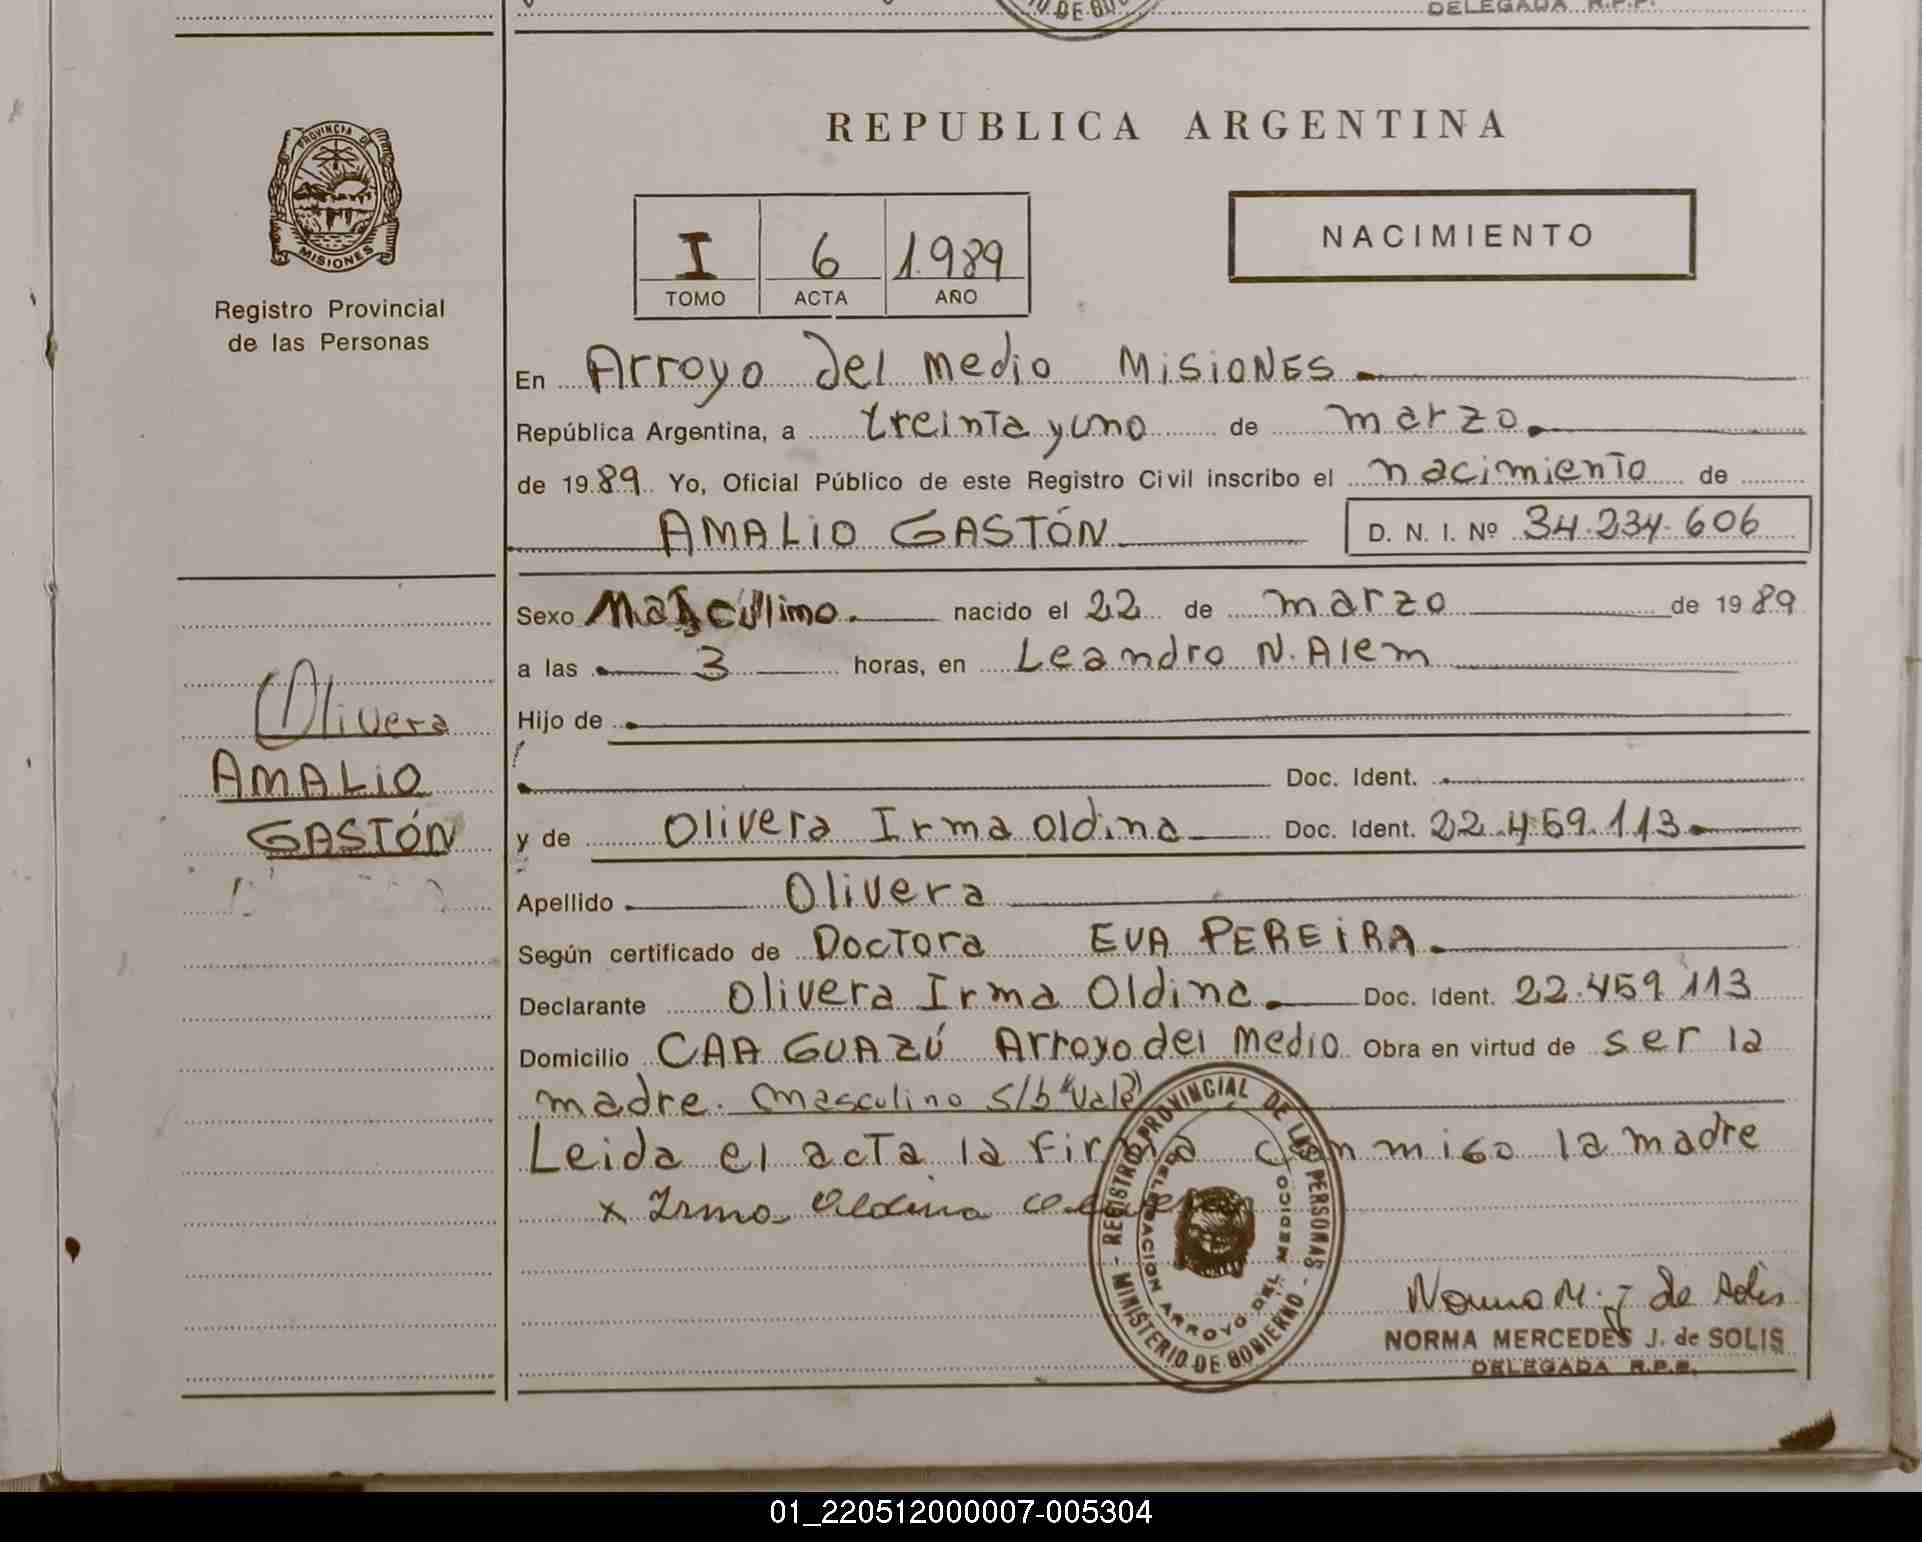 DELEGADA R.P.P.
PROVINCIA DE
MISIONES
Registro Provincial
de las Personas
REPUBLICA ARGENTINA
I 6 1.989
TOMO ACTA AÑO
NACIMIENTO
En Arroyo del medio MisioNES
República Argentina, a treinta y uno de marzo
de 1989. Yo, Oficial Público de este Registro Civil inscribo el nacimiento de
AMALIO GASTÓN D. N. I. Nº 34.234.606
Sexo Masculino. nacido el 22 de marzo de 1989
a las 3 horas, en Leandro N. Alem
Hijo de
Doc. Ident.
y de Olivera Irma Oldina Doc. Ident. 22.459.113
Apellido Olivera
Según certificado de Doctora EVA PEREIRA.
Declarante Olivera Irma Oldina. Doc. Ident. 22.459.113
Domicilio CAA GUAZÚ Arroyo del medio Obra en virtud de ser la
madre. masculino s/b "Vale"
Leida el acta la firma conmigo la madre
x Irma Oldina Olivera
Olivera
AMALIO
GASTÓN
REGISTRO PROVINCIAL DE LAS PERSONAS
MINISTERIO DE GOBIERNO
DELEGACION ARROYO DEL MEDIO
Norma M. J de Solis
NORMA MERCEDES J. de SOLIS
DELEGADA R.P.P.
01_220512000007-005304